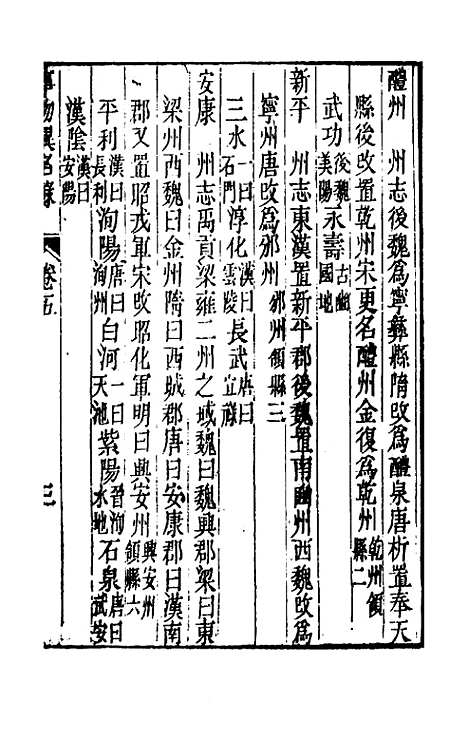 醴州　州志後魏爲寧彝縣隋改爲醴泉唐析置奉天
縣後改置乾州宋更名醴州金復爲乾州乾州領縣二
武功後魏美陽永壽古豳國地
新平　州志東漢置新平郡後魏置南豳州西魏改爲
寧州唐改爲邠州邠州領縣三
三水一曰石門淳化漢曰雲陵長武唐曰宜祿
安康　州志禹貢梁雍二州之域魏曰魏興郡梁曰東
梁州西魏曰金州隋曰西城郡唐曰安康郡曰漢南
郡又置昭戎軍宋改昭化軍明曰興安州興安州領縣六
平利漢曰長利洵陽唐曰洵州白河一曰天池紫陽晉洵水地石泉唐曰武安
漢陰漢曰安陽
事物異名錄　卷五　三